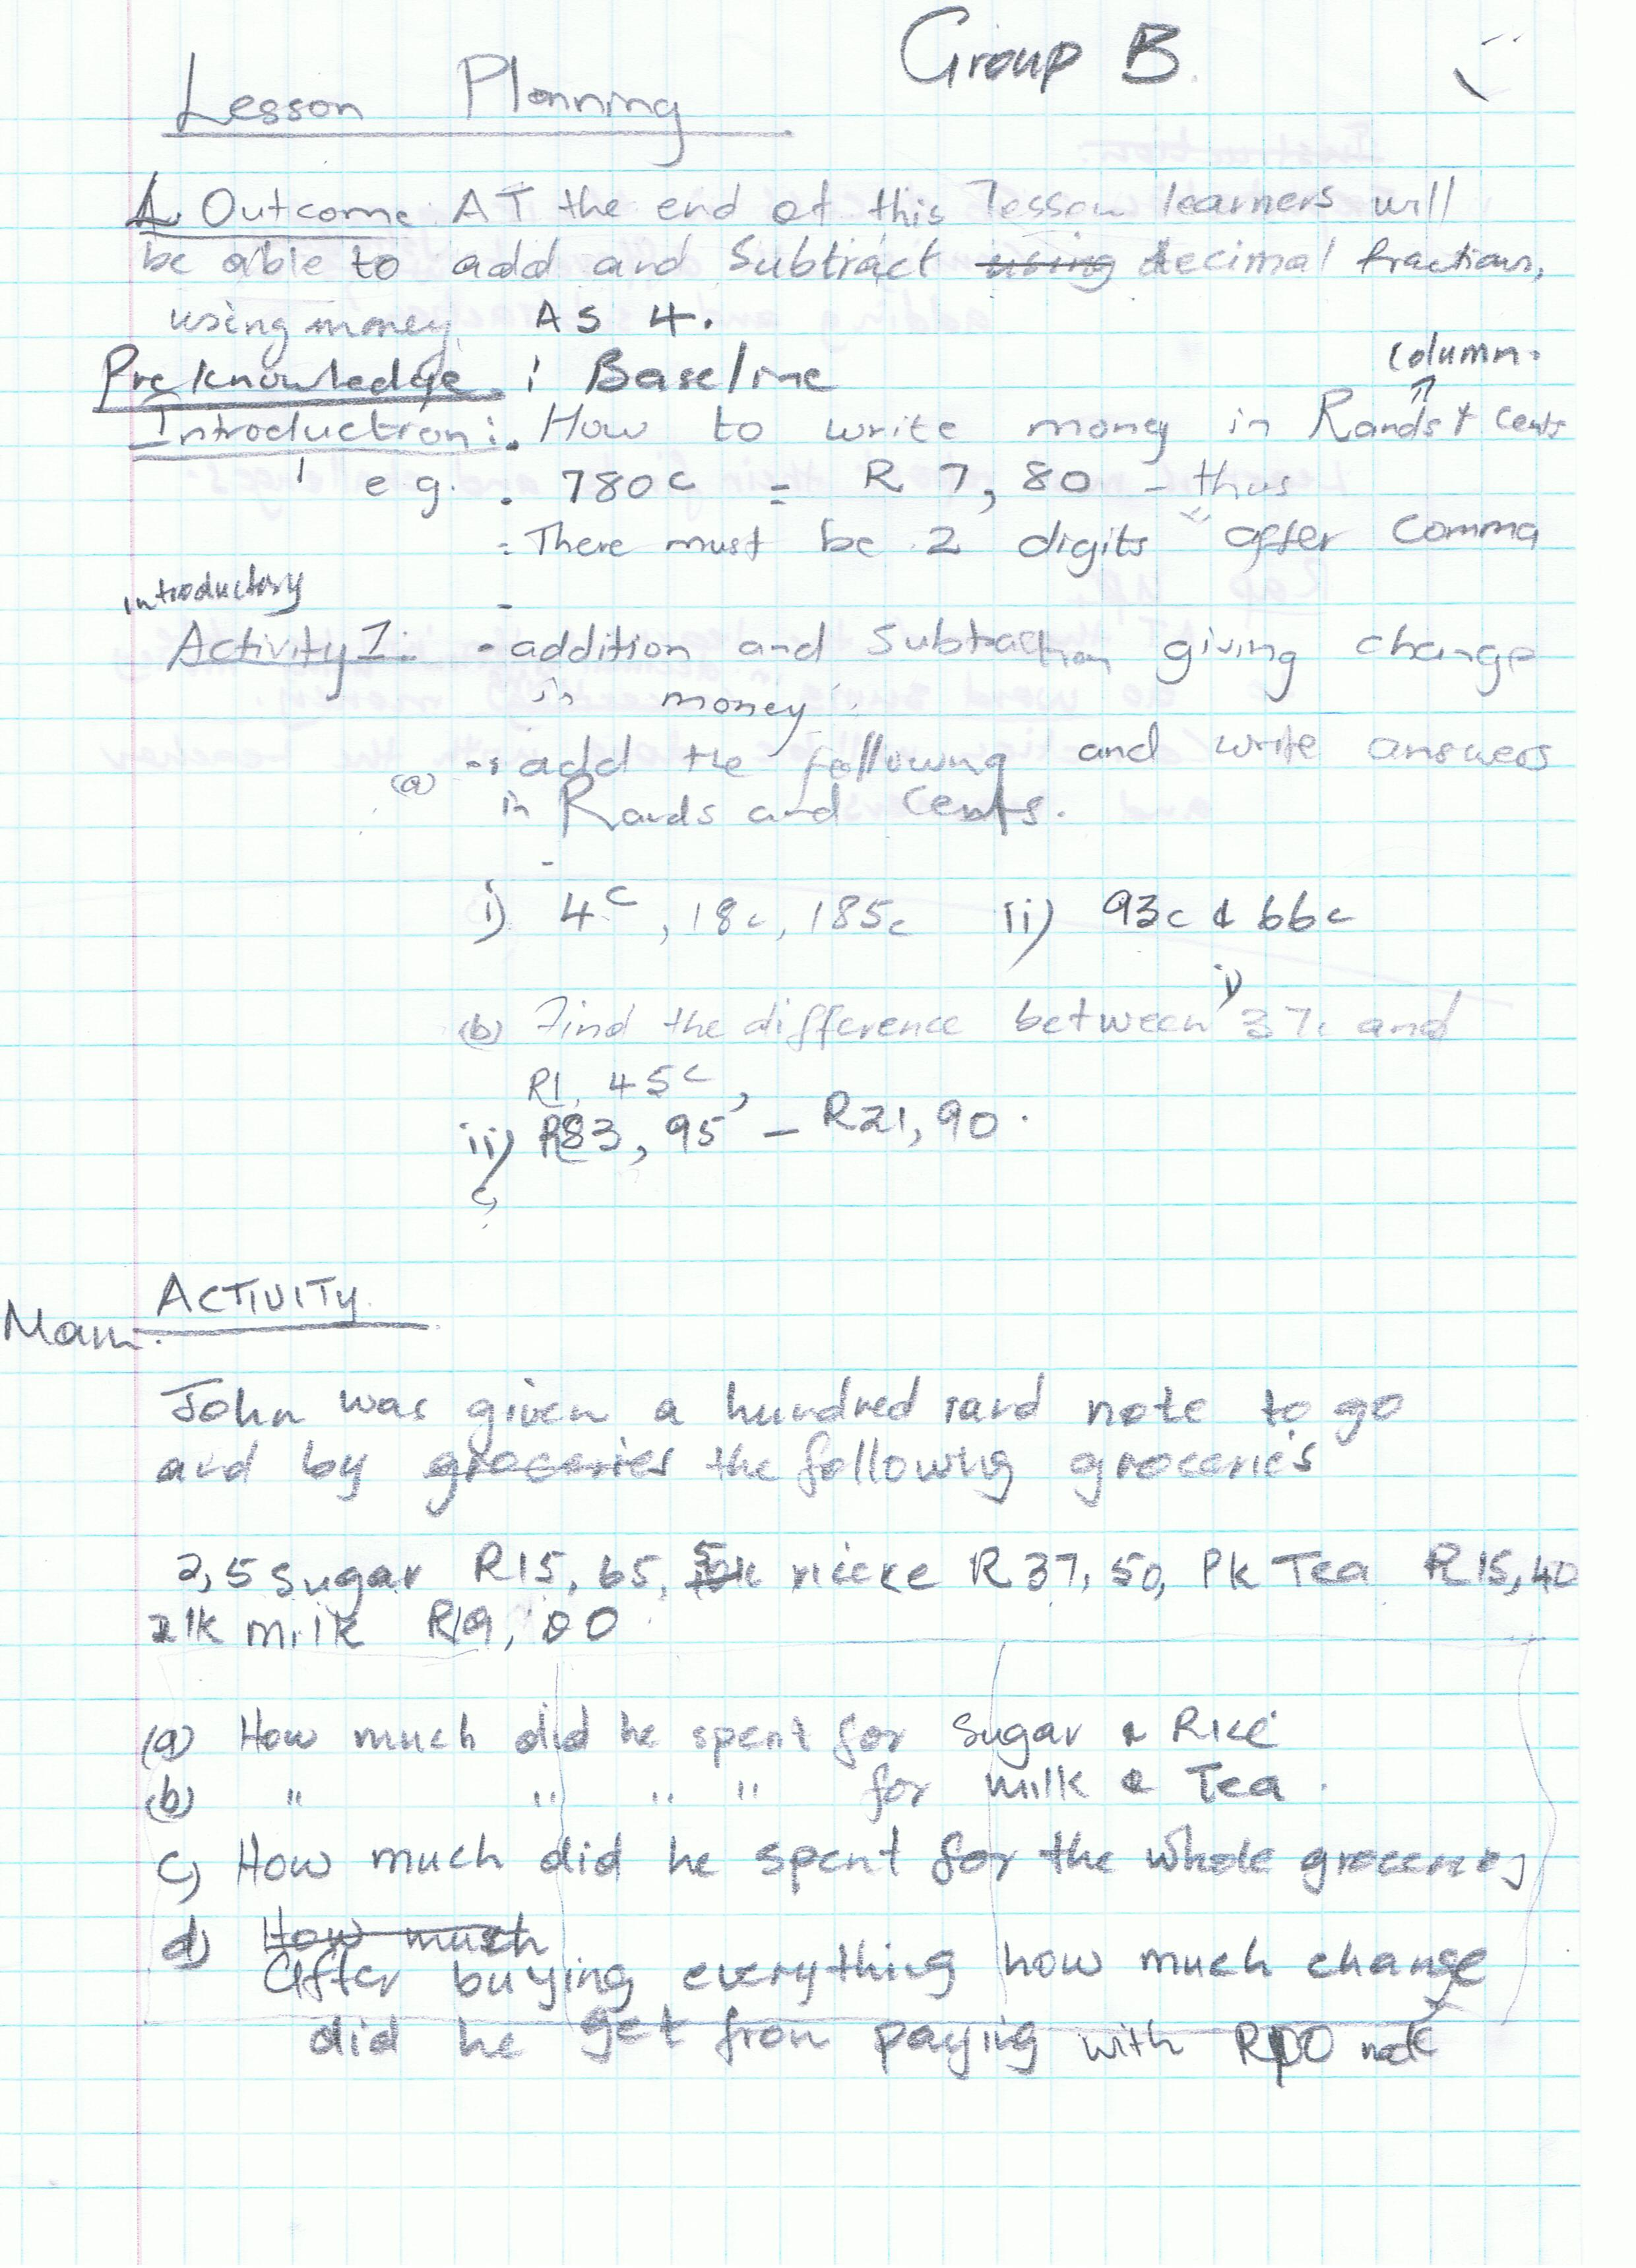 Group B.
Lesson Planning
A. Outcome: AT the end of this lesson learners will
be able to add and Subtract using decimal fractions,
using money. AS 4.
Preknowledge : Baseline
column.
Introduction: . How to write money in Rands & Cents
e g. . 780c = R 7,80 - thus
- There must be 2 digits after comma
introductory
Activity 1: - addition and Subtraction giving change
in money
(a) - add the following and write answers
in Rands and Cents.
i) 4c, 18c, 185c ii) 93c & 66c
(b) Find the difference between i) 37c and
R1, 45c,
ii) R83,95 - R21,90.
Main ACTIVITY
John was given a hundred rand note to go
and by groceries the following groceries
2,5 sugar R15,65, 5k ricke R37,50, Pk Tea R15,40
2lk milk R19,00
(a) How much did he spent for Sugar & Rice
(b) " " " " for milk & Tea.
c) How much did he spent for the whole groceries
d) How much
After buying everything how much change
did he get from paying with R100 note